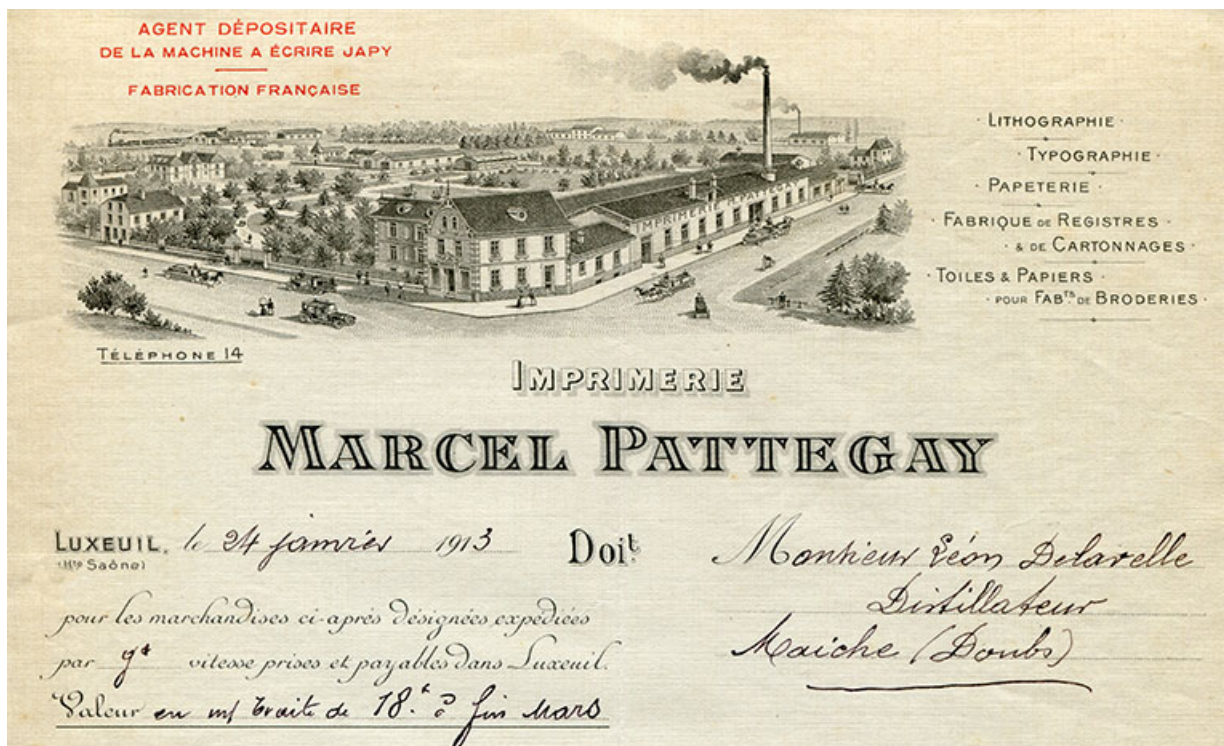 AGENT DÉPOSITAIRE
DE LA MACHINE A ÉCRIRE JAPY
FABRICATION FRANÇAISE
LITHOGRAPHIE
TYPOGRAPHIE
PAPETERIE
FABRIQUE DE REGISTRES
& DE CARTONNAGES
TOILES & PAPIERS
POUR FABTS DE BRODERIES
IMPRIMERIE M. PATTEGAY
TÉLÉPHONE 14
IMPRIMERIE
MARCEL PATTEGAY
LUXEUIL, le 24 janvier 1913
(Hte Saône)
Doit
Monsieur Léon Delavelle
Distillateur
Maiche (Doubs)
pour les marchandises ci-après désignées expédiées
par gde vitesse prises et payables dans Luxeuil.
Valeur en m/ traite de 18.f à fin Mars